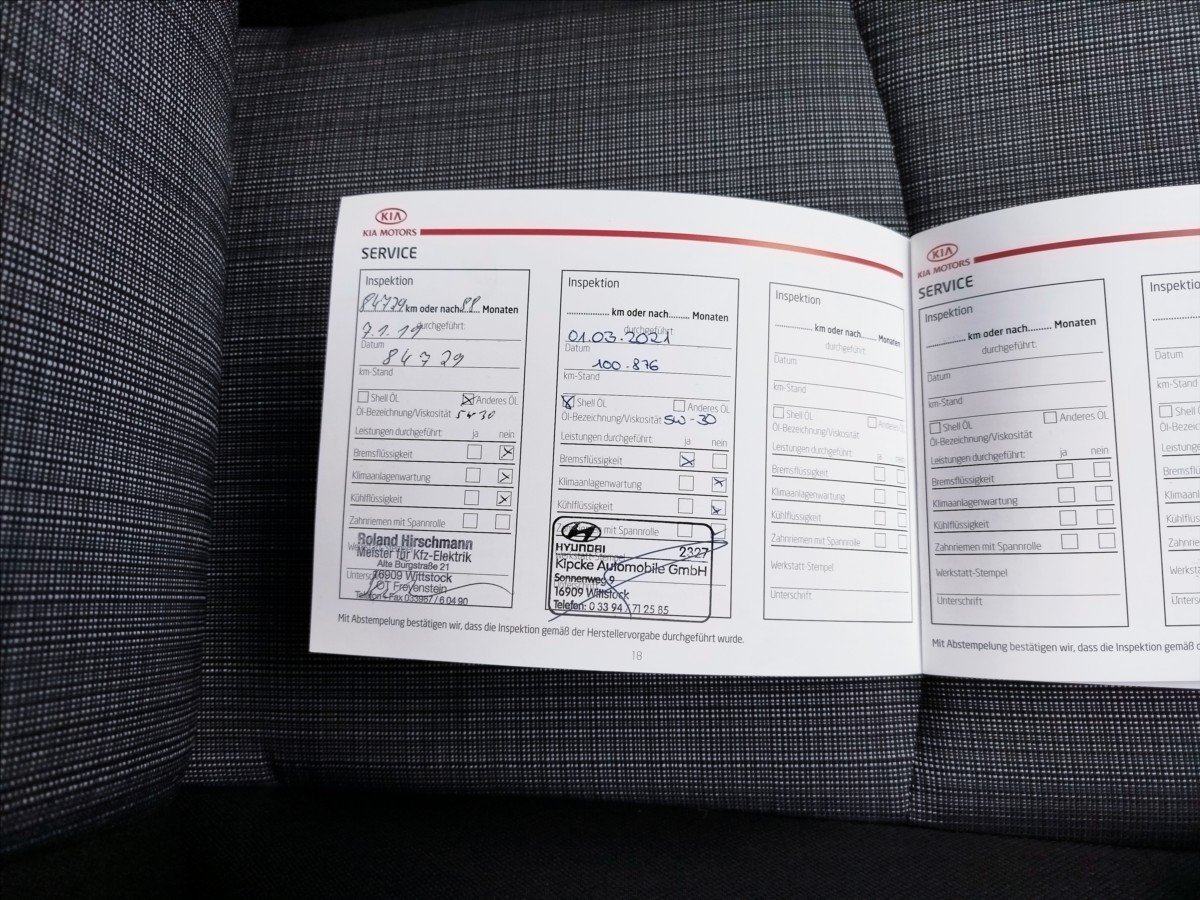 KIA
KIA MOTORS
SERVICE
Inspektion
84729 km oder nach 88 Monaten
durchgeführt:
7.1.19
Datum
84729
km-Stand
Shell ÖL Anderes ÖL
Öl-Bezeichnung/Viskosität 5W30
Leistungen durchgeführt: ja nein
Bremsflüssigkeit
Klimaanlagenwartung
Kühlflüssigkeit
Zahnriemen mit Spannrolle
Roland Hirschmann
Meister für Kfz-Elektrik
Alte Burgstraße 21
16909 Wittstock
OT Freyenstein
Telefon + Fax 033967 / 6 04 90
Inspektion
km oder nach Monaten
durchgeführt:
01.03.2021
Datum
100.876
km-Stand
Shell ÖL Anderes ÖL
Öl-Bezeichnung/Viskosität 5W-30
Leistungen durchgeführt: ja nein
Bremsflüssigkeit
Klimaanlagenwartung
Kühlflüssigkeit
mit Spannrolle
HYUNDAI 2327
Kipcke Automobile GmbH
Sonnenweg 9
16909 Wittstock
Telefon: 0 33 94 / 71 25 85
Inspektion
km oder nach Monaten
durchgeführt:
Datum
km-Stand
Shell ÖL Anderes ÖL
Öl-Bezeichnung/Viskosität
Leistungen durchgeführt: ja nein
Bremsflüssigkeit
Klimaanlagenwartung
Kühlflüssigkeit
Zahnriemen mit Spannrolle
Werkstatt-Stempel
Unterschrift
Mit Abstempelung bestätigen wir, dass die Inspektion gemäß der Herstellervorgabe durchgeführt wurde.
18
KIA
KIA MOTORS
SERVICE
Inspektion
km oder nach Monaten
durchgeführt:
Datum
km-Stand
Shell ÖL Anderes ÖL
Öl-Bezeichnung/Viskosität
Leistungen durchgeführt: ja nein
Bremsflüssigkeit
Klimaanlagenwartung
Kühlflüssigkeit
Zahnriemen mit Spannrolle
Werkstatt-Stempel
Unterschrift
Mit Abstempelung bestätigen wir, dass die Inspektion gemäß
Datum
km-Stand
Shell